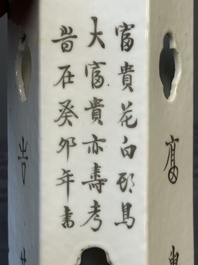 富
富貴花白頭鳥
大富貴亦壽考
旹在癸卯年書
吉